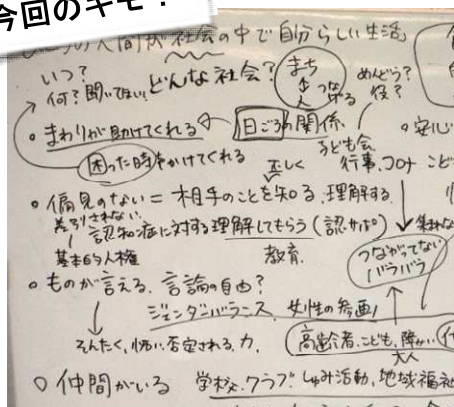 今回のキモ！
の人間が社会の中で自分らしい生活
いつ？
何？聞いてほしい
どんな社会？
まち
人
つなげる
めんどう？
役？
。まわりが助けてくれる
日ごろの関係
困った時声かけてくれる
正しく
子ども会
行事、コロナ
こど
。安心
。偏見のない＝相手のことを知る、理解する
差別されない
認知症に対する理解してもらう（認サポ）
基本的人権
教育
つながってない
バラバラ
。ものが言える、言論の自由？
ジェンダーバランス 女性の参画
そんたく、怖い、否定される、力、
高齢者、こども、障がい
大人
○仲間がいる 学校、クラブ、しゅみ活動、地域福祉